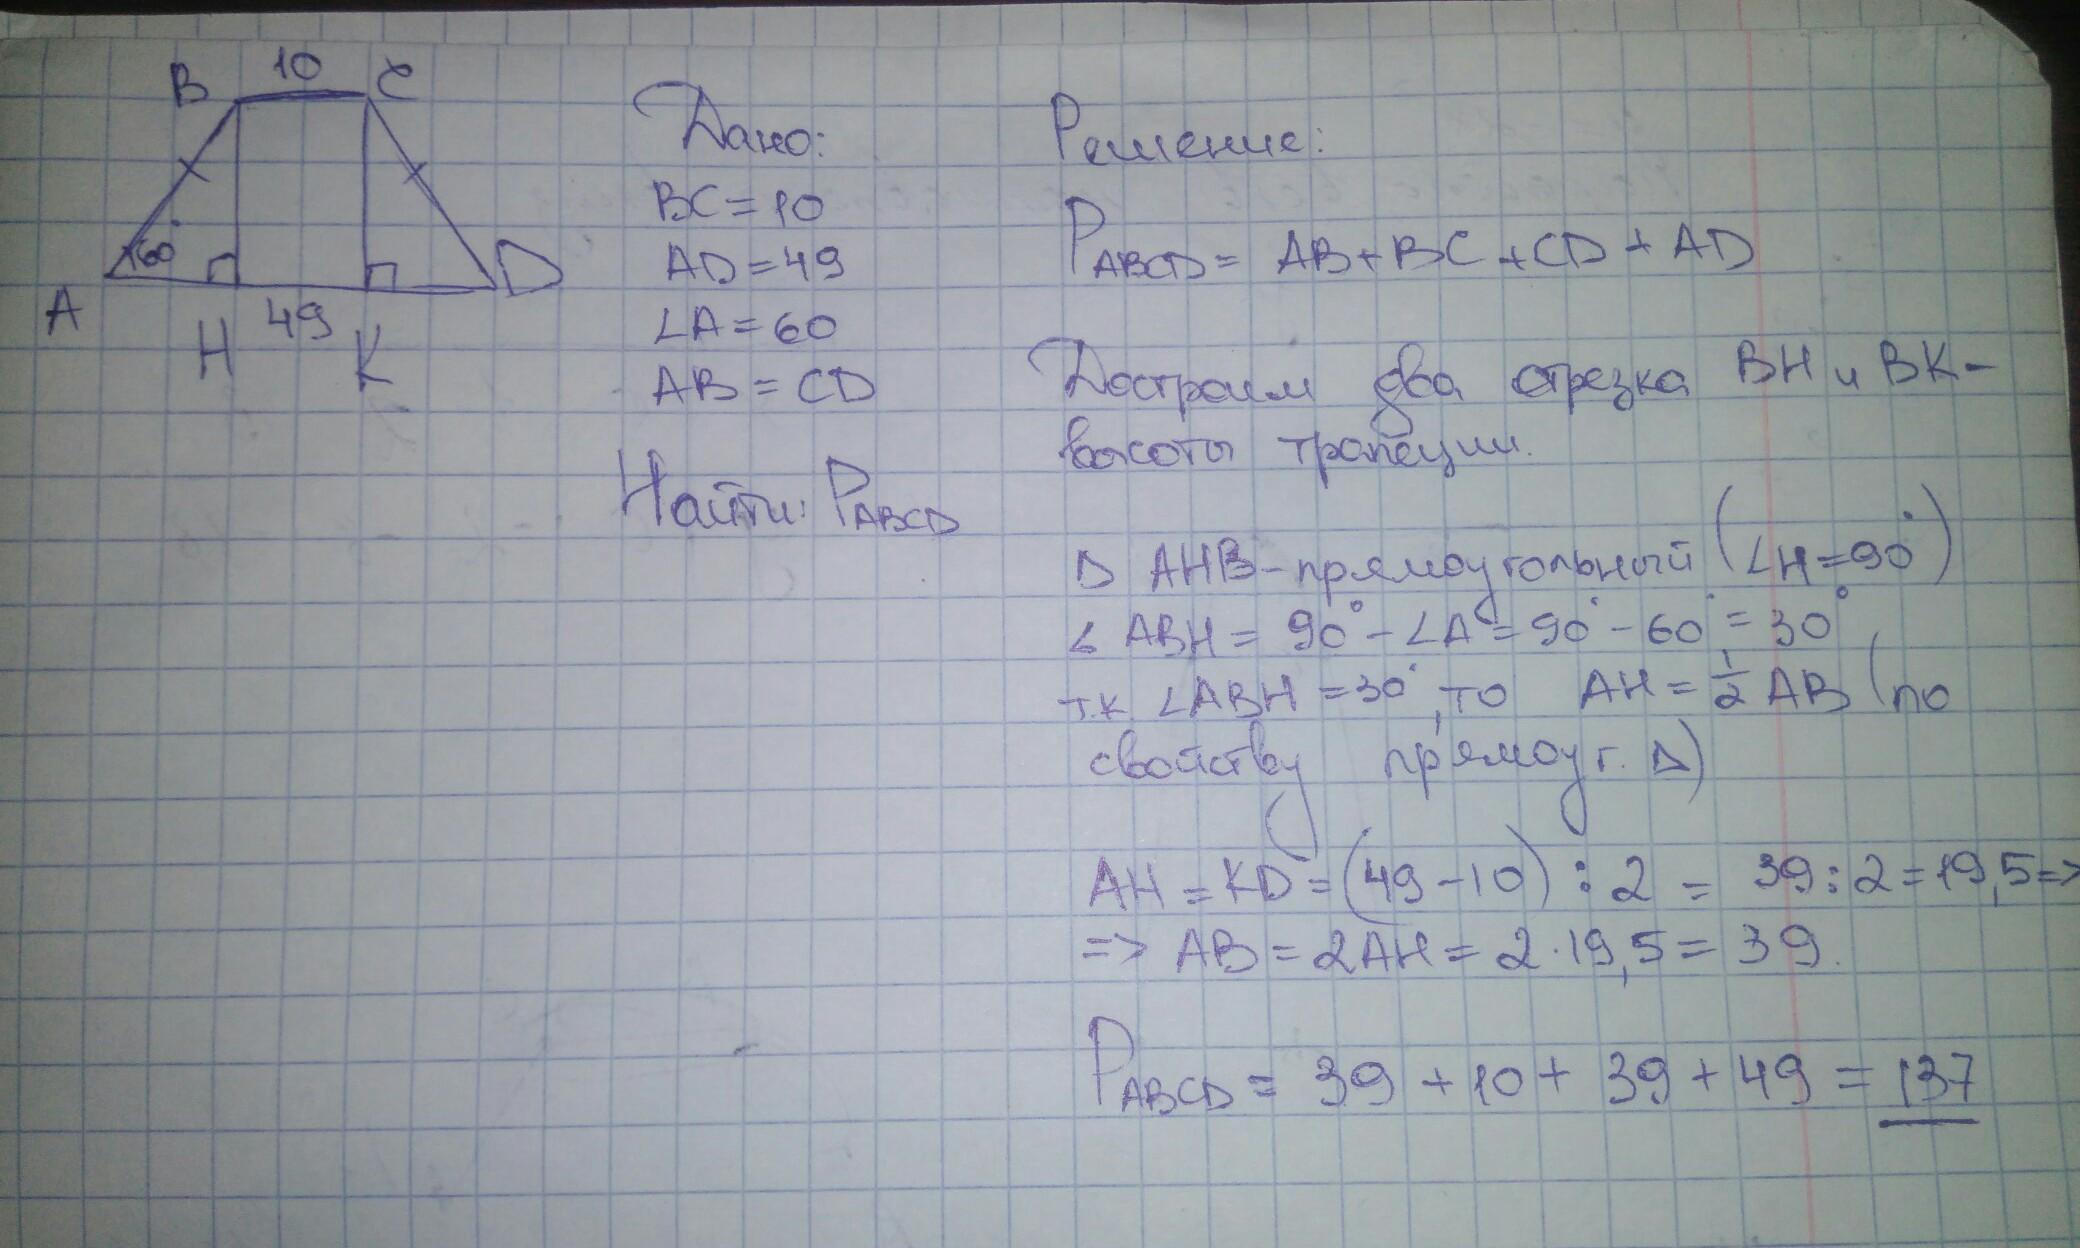 B 10 C
60°
A H 49 K D
Дано:
BC = 10
AD = 49
∠A = 60
AB = CD
Найти: P ABCD
Решение:
P ABCD = AB + BC + CD + AD
Достроим два отрезка BH и BK -
высоты трапеции.
Δ AHB - прямоугольный (∠H = 90°)
∠ ABH = 90° - ∠A = 90° - 60° = 30°
т.к. ∠ABH = 30°, то AH = 1/2 AB (по
свойству прямоуг. Δ)
AH = KD = (49 - 10) : 2 = 39 : 2 = 19,5 =>
=> AB = 2AH = 2 · 19,5 = 39.
P ABCD = 39 + 10 + 39 + 49 = 137